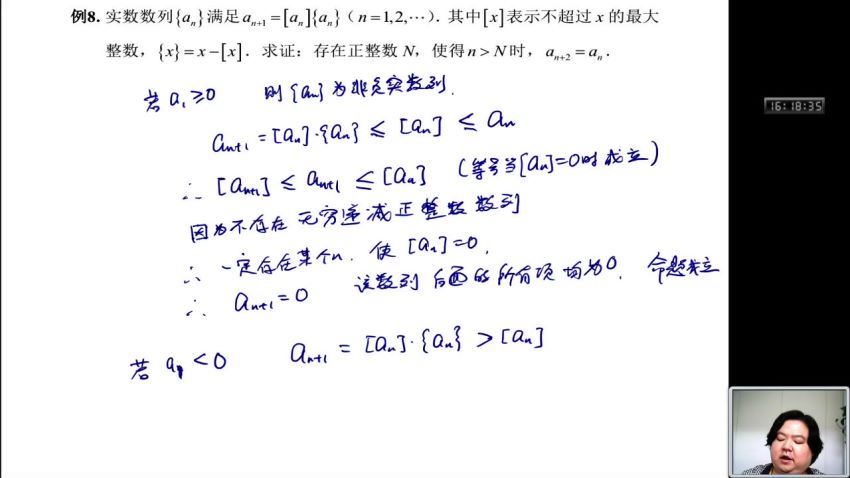 例8. 实数数列{aₙ}满足aₙ₊₁=[aₙ]{aₙ}（n=1,2,⋯）．其中[x]表示不超过 x 的最大
整数，{x}=x−[x]．求证：存在正整数 N，使得n>N时，aₙ₊₂=aₙ．
16:18:35
若 a₁≥0 则{aₙ}为非负实数列.
aₙ₊₁=[aₙ]·{aₙ} ≤ [aₙ] ≤ aₙ
∴ [aₙ₊₁] ≤ aₙ₊₁ ≤ [aₙ] (等号当[aₙ]=0时成立)
因为不存在 无穷递减正整数数列
∴ 一定存在某个n. 使 [aₙ]=0,
∴ aₙ₊₁=0 该数列 后面的所有项均为0, 命题成立
若 a₁<0 aₙ₊₁ = [aₙ]·{aₙ} > [aₙ]